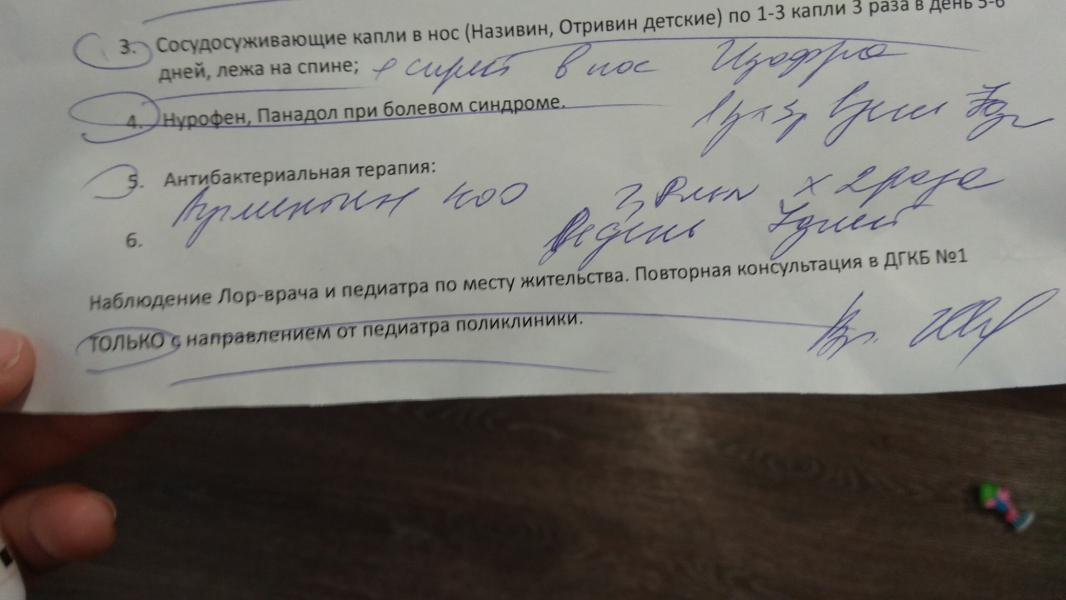 3. Сосудосуживающие капли в нос (Називин, Отривин детские) по 1-3 капли 3 раза в день 5-6
дней, лежа на спине; + спрей в нос Изофра
4. Нурофен, Панадол при болевом синдроме.
5. Антибактериальная терапия:
Аугментин 400 х 2 раза
6. в день 7 дней
Наблюдение Лор-врача и педиатра по месту жительства. Повторная консультация в ДГКБ №1
ТОЛЬКО с направлением от педиатра поликлиники.